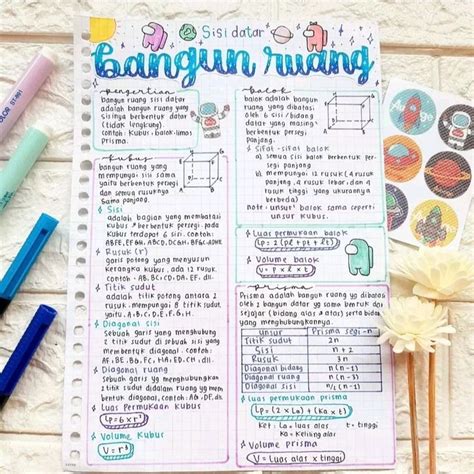 Sisi datar
bangun ruang
pengertian
bangun ruang sisi datar
adalah bangun ruang yg
sisinya berbentuk datar
(tidak lengkung)
contoh: Kubus, balok, limas
prisma.
kubus
bangun ruang yang
mempunyai sisi sama
yaitu berbentuk persegi
dan semua rusuknya
Sama panjang.
Sisi
adalah bagian yang membatasi
kubus berbentuk persegi. pada
kubus terdapat 6 sisi. contoh:
Rusuk (r)
garis potong yang menyusun
kerangka kubus. ada 12 rusuk.
contoh: AB, BC, CD, DA, EF, dll.
Titik sudut
adalah titik potong antara 2
rusuk. mempunyai 8 titik sudut.
yaitu: A, B, C, D, E, F, G, H.
Diagonal sisi
Sebuah garis yang menghubung
2 titik sudut di sebuah sisi yang
membentuk diagonal. contoh:
Diagonal ruang
Sebuah garis yg menghubungkan
2 titik sudut didalam ruang yg mem
bentuk diagonal. contoh:
Luas Permukaan Kubus
Lp = 6 x r²
Volume Kubus
V = r³
balok
balok adalah bangun
ruang yang dibatasi
oleh 6 sisi/bidang
datar yang masing²
berbentuk persegi
panjang.
Sifat-sifat balok
a) semua sisi balok berbentuk per
segi panjang.
b) mempunyai 12 rusuk (4 rusuk
panjang, 4 rusuk lebar, dan 4
rusuk tinggi yang ukurannya
berbeda)
note: unsur² balok sama seperti
unsur kubus.
Luas permukaan balok
Lp = 2 (pl + pt + lt)
Volume balok
V = p x l x t
prisma
Prisma adalah bangun ruang yg dibatas
oleh 2 bangun datar yg sama bentuk dan
sejajar (bidang alas & atas) serta bidang
yang menghubungkannya.
unsur Prisma segi-n
Titik sudut 2n
Sisi n + 2
Rusuk 3n
Diagonal bidang n(n-1)
Diagonal ruang n(n-3)
Diagonal sisi
luas permukaan prisma
Lp = (2 x La) + (Ka x t)
La = Luas alas t = tinggi
Ka = Keliling alas
Volume Prisma
V = Luas alas x tinggi